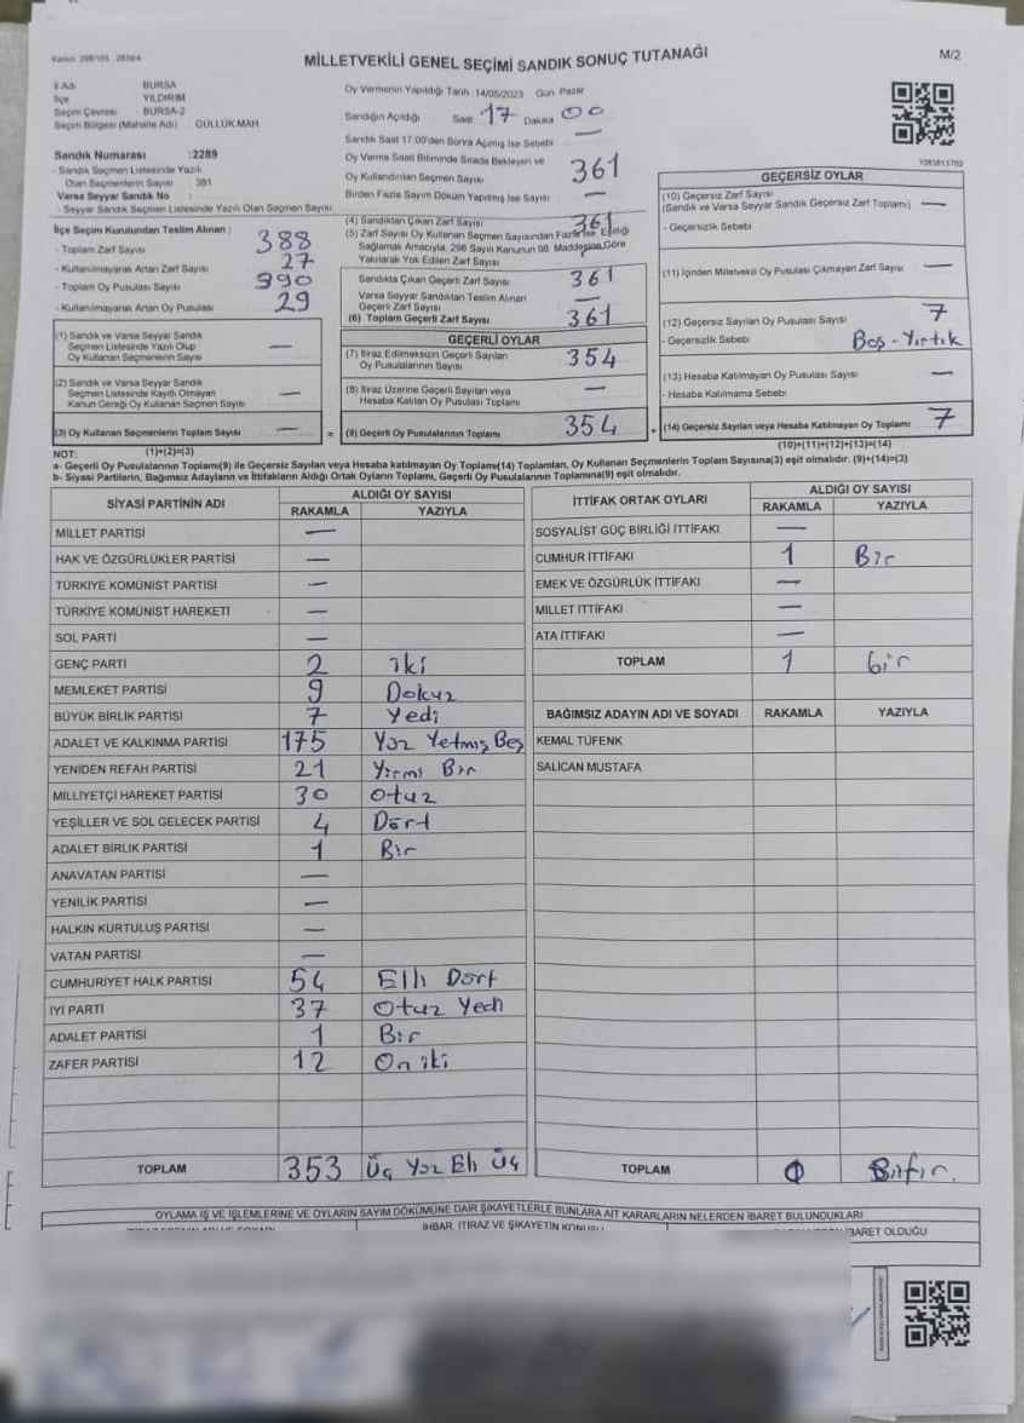 MİLLETVEKİLİ GENEL SEÇİMİ SANDIK SONUÇ TUTANAĞI
M/2
İl Adı BURSA
İlçe YILDIRIM
Seçim Çevresi BURSA-2
Seçim Bölgesi (Mahalle Adı) GÜLLÜK MAH.
Sandık Numarası :2289
- Sandık Seçmen Listesinde Yazılı
Olan Seçmenlerin Sayısı : 381
Varsa Seyyar Sandık No :
- Seyyar Sandık Seçmen Listesinde Yazılı Olan Seçmen Sayısı
Oy Vermenin Yapıldığı Tarih :14/05/2023 Gün Pazar
Sandığın Açıldığı Saat 17 Dakika 00
Sandık Saat 17:00'den Sonra Açılmış İse Sebebi —
Oy Verme Saati Bitiminde Sırada Bekleyen ve
Oy Kullandırılan Seçmen Sayısı 361
Birden Fazla Sayım Döküm Yapılmış İse Sayısı —
İlçe Seçim Kurulundan Teslim Alınan :
- Toplam Zarf Sayısı 388
- Kullanılmayarak Artan Zarf Sayısı 27
- Toplam Oy Pusulası Sayısı 390
- Kullanılmayarak Artan Oy Pusulası 29
(1) Sandık ve Varsa Seyyar Sandık
Seçmen Listesinde Yazılı Olup
Oy Kullanan Seçmenlerin Sayısı —
(2) Sandık ve Varsa Seyyar Sandık
Seçmen Listesinde Kayıtlı Olmayan
Kanun Gereği Oy Kullanan Seçmen Sayısı —
(3) Oy Kullanan Seçmenlerin Toplam Sayısı —
(1)+(2)=(3)
(4) Sandıktan Çıkan Zarf Sayısı 361
(5) Zarf Sayısı Oy Kullanan Seçmen Sayısından Fazla İse, Eşitliği
Sağlamak Amacıyla, 298 Sayılı Kanunun 98. Maddesine Göre
Yakılarak Yok Edilen Zarf Sayısı —
Sandıkta Çıkan Geçerli Zarf Sayısı 361
Varsa Seyyar Sandıktan Teslim Alınan
Geçerli Zarf Sayısı —
(6) Toplam Geçerli Zarf Sayısı 361
GEÇERLİ OYLAR
(7) İtiraz Edilmeksizin Geçerli Sayılan
Oy Pusulalarının Sayısı 354
(8) İtiraz Üzerine Geçerli Sayılan veya
Hesaba Katılan Oy Pusulası Toplamı —
= (9) Geçerli Oy Pusulalarının Toplamı 354
GEÇERSİZ OYLAR
(10) Geçersiz Zarf Sayısı
(Sandık ve Varsa Seyyar Sandık Geçersiz Zarf Toplamı) —
- Geçersizlik Sebebi
(11) İçinden Milletvekili Oy Pusulası Çıkmayan Zarf Sayısı —
(12) Geçersiz Sayılan Oy Pusulası Sayısı 7
- Geçersizlik Sebebi Boş - Yırtık
(13) Hesaba Katılmayan Oy Pusulası Sayısı —
- Hesaba Katılmama Sebebi
+ (14) Geçersiz Sayılan veya Hesaba Katılmayan Oy Toplamı 7
(10)+(11)+(12)+(13)=(14)
NOT:
a- Geçerli Oy Pusulalarının Toplamı(9) ile Geçersiz Sayılan veya Hesaba katılmayan Oy Toplamı(14) Toplamları, Oy Kullanan Seçmenlerin Toplam Sayısına(3) eşit olmalıdır. (9)+(14)=(3)
b- Siyasi Partilerin, Bağımsız Adayların ve İttifakların Aldığı Ortak Oyların Toplamı, Geçerli Oy Pusulalarının Toplamına(9) eşit olmalıdır.
SİYASİ PARTİNİN ADI ALDIĞI OY SAYISI
RAKAMLA YAZIYLA
MİLLET PARTİSİ —
HAK VE ÖZGÜRLÜKLER PARTİSİ —
TÜRKİYE KOMÜNİST PARTİSİ —
TÜRKİYE KOMÜNİST HAREKETİ —
SOL PARTİ —
GENÇ PARTİ 2 iki
MEMLEKET PARTİSİ 9 Dokuz
BÜYÜK BİRLİK PARTİSİ 7 Yedi
ADALET VE KALKINMA PARTİSİ 175 Yüz Yetmiş Beş
YENİDEN REFAH PARTİSİ 21 Yirmi Bir
MİLLİYETÇİ HAREKET PARTİSİ 30 Otuz
YEŞİLLER VE SOL GELECEK PARTİSİ 4 Dört
ADALET BİRLİK PARTİSİ 1 Bir
ANAVATAN PARTİSİ —
YENİLİK PARTİSİ —
HALKIN KURTULUŞ PARTİSİ —
VATAN PARTİSİ —
CUMHURİYET HALK PARTİSİ 54 Elli Dört
İYİ PARTİ 37 Otuz Yedi
ADALET PARTİSİ 1 Bir
ZAFER PARTİSİ 12 On iki
TOPLAM 353 Üç Yüz Elli Üç
İTTİFAK ORTAK OYLARI ALDIĞI OY SAYISI
RAKAMLA YAZIYLA
SOSYALİST GÜÇ BİRLİĞİ İTTİFAKI —
CUMHUR İTTİFAKI 1 Bir
EMEK VE ÖZGÜRLÜK İTTİFAKI —
MİLLET İTTİFAKI —
ATA İTTİFAKI —
TOPLAM 1 bir
BAĞIMSIZ ADAYIN ADI VE SOYADI RAKAMLA YAZIYLA
KEMAL TÜFENK
SALİCAN MUSTAFA
TOPLAM 0 Sıfır.
OYLAMA İŞ VE İŞLEMLERİNE VE OYLARIN SAYIM DÖKÜMÜNE DAİR ŞİKAYETLERLE BUNLARA AİT KARARLARIN NELERDEN İBARET BULUNDUKLARI
İHBAR, İTİRAZ VE ŞİKAYETİN KONUSU
İBARET OLDUĞU